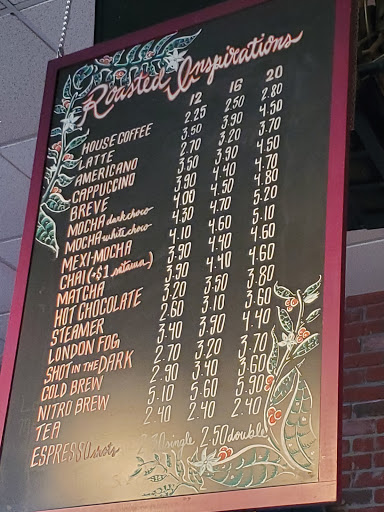 Roasted Inspirations
12 16 20
HOUSE COFFEE 2.25 2.50 2.80
LATTE 3.50 3.90 4.50
AMERICANO 2.70 3.20 3.70
CAPPUCCINO 3.50 3.90 4.50
BREVE 3.90 4.40 4.70
MOCHA dark choco 4.00 4.50 4.80
MOCHA white choco 4.30 4.70 5.20
MEXI-MOCHA 4.10 4.60 5.10
CHAI (+$1 satawa) 3.90 4.40 4.60
MATCHA 3.90 4.40 4.60
HOT CHOCOLATE 3.20 3.50 3.80
STEAMER 2.60 3.10 3.60
LONDON FOG 3.40 3.90 4.40
SHOT IN THE DARK 2.70 3.20 3.70
COLD BREW 2.90 3.40 3.60
NITRO BREW 5.10 5.60 5.90
TEA 2.40 2.40 2.40
ESPRESSO shots single 2.50 double